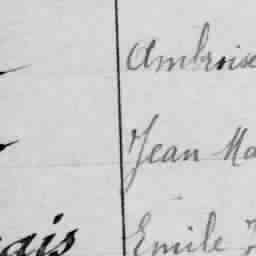 Ambroise
Jean Ma
ais Emile